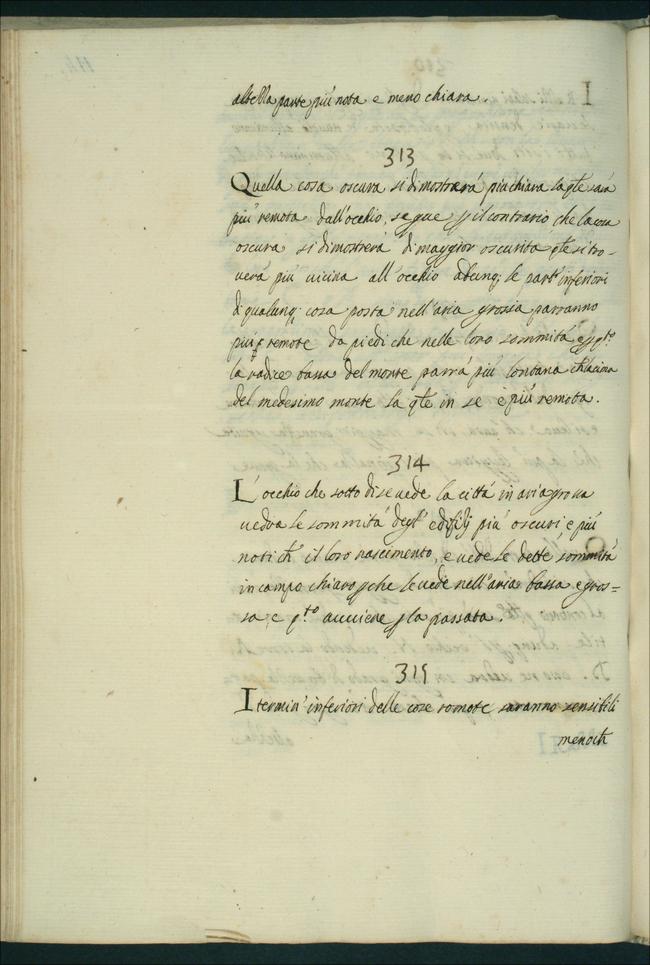 alta la parte più nota e meno chiara.
313
Quella cosa oscura si dimostrerá piu chiara la qle sará
piú remota dall'occhio, segue p il contrario che la cosa
oscura si dimostrerá di maggior oscurita qle si tro-
verá piú vicina all'occhio adunq; le parti inferiori
di qualunq; cosa posta nell'aria grossa parranno
piú remote da piedi che nelle loro sommitá e p qto
la radice bassa del monte parrá piú lontana ch la cima
del medesimo monte la qle in se è piú remota.
314
L'occhio che sotto di se vede la cittá in aria grossa
vedrá le sommitá degl' edifitij piú oscuri, e piú
noti ch il loro nascimento, e vede le dette sommitá
in campo chiaro p che le vede nell'aria bassa e gros=
sa, e qto avviene p la passata.
315
I termini inferiori delle cose remote saranno sensibili
meno ch